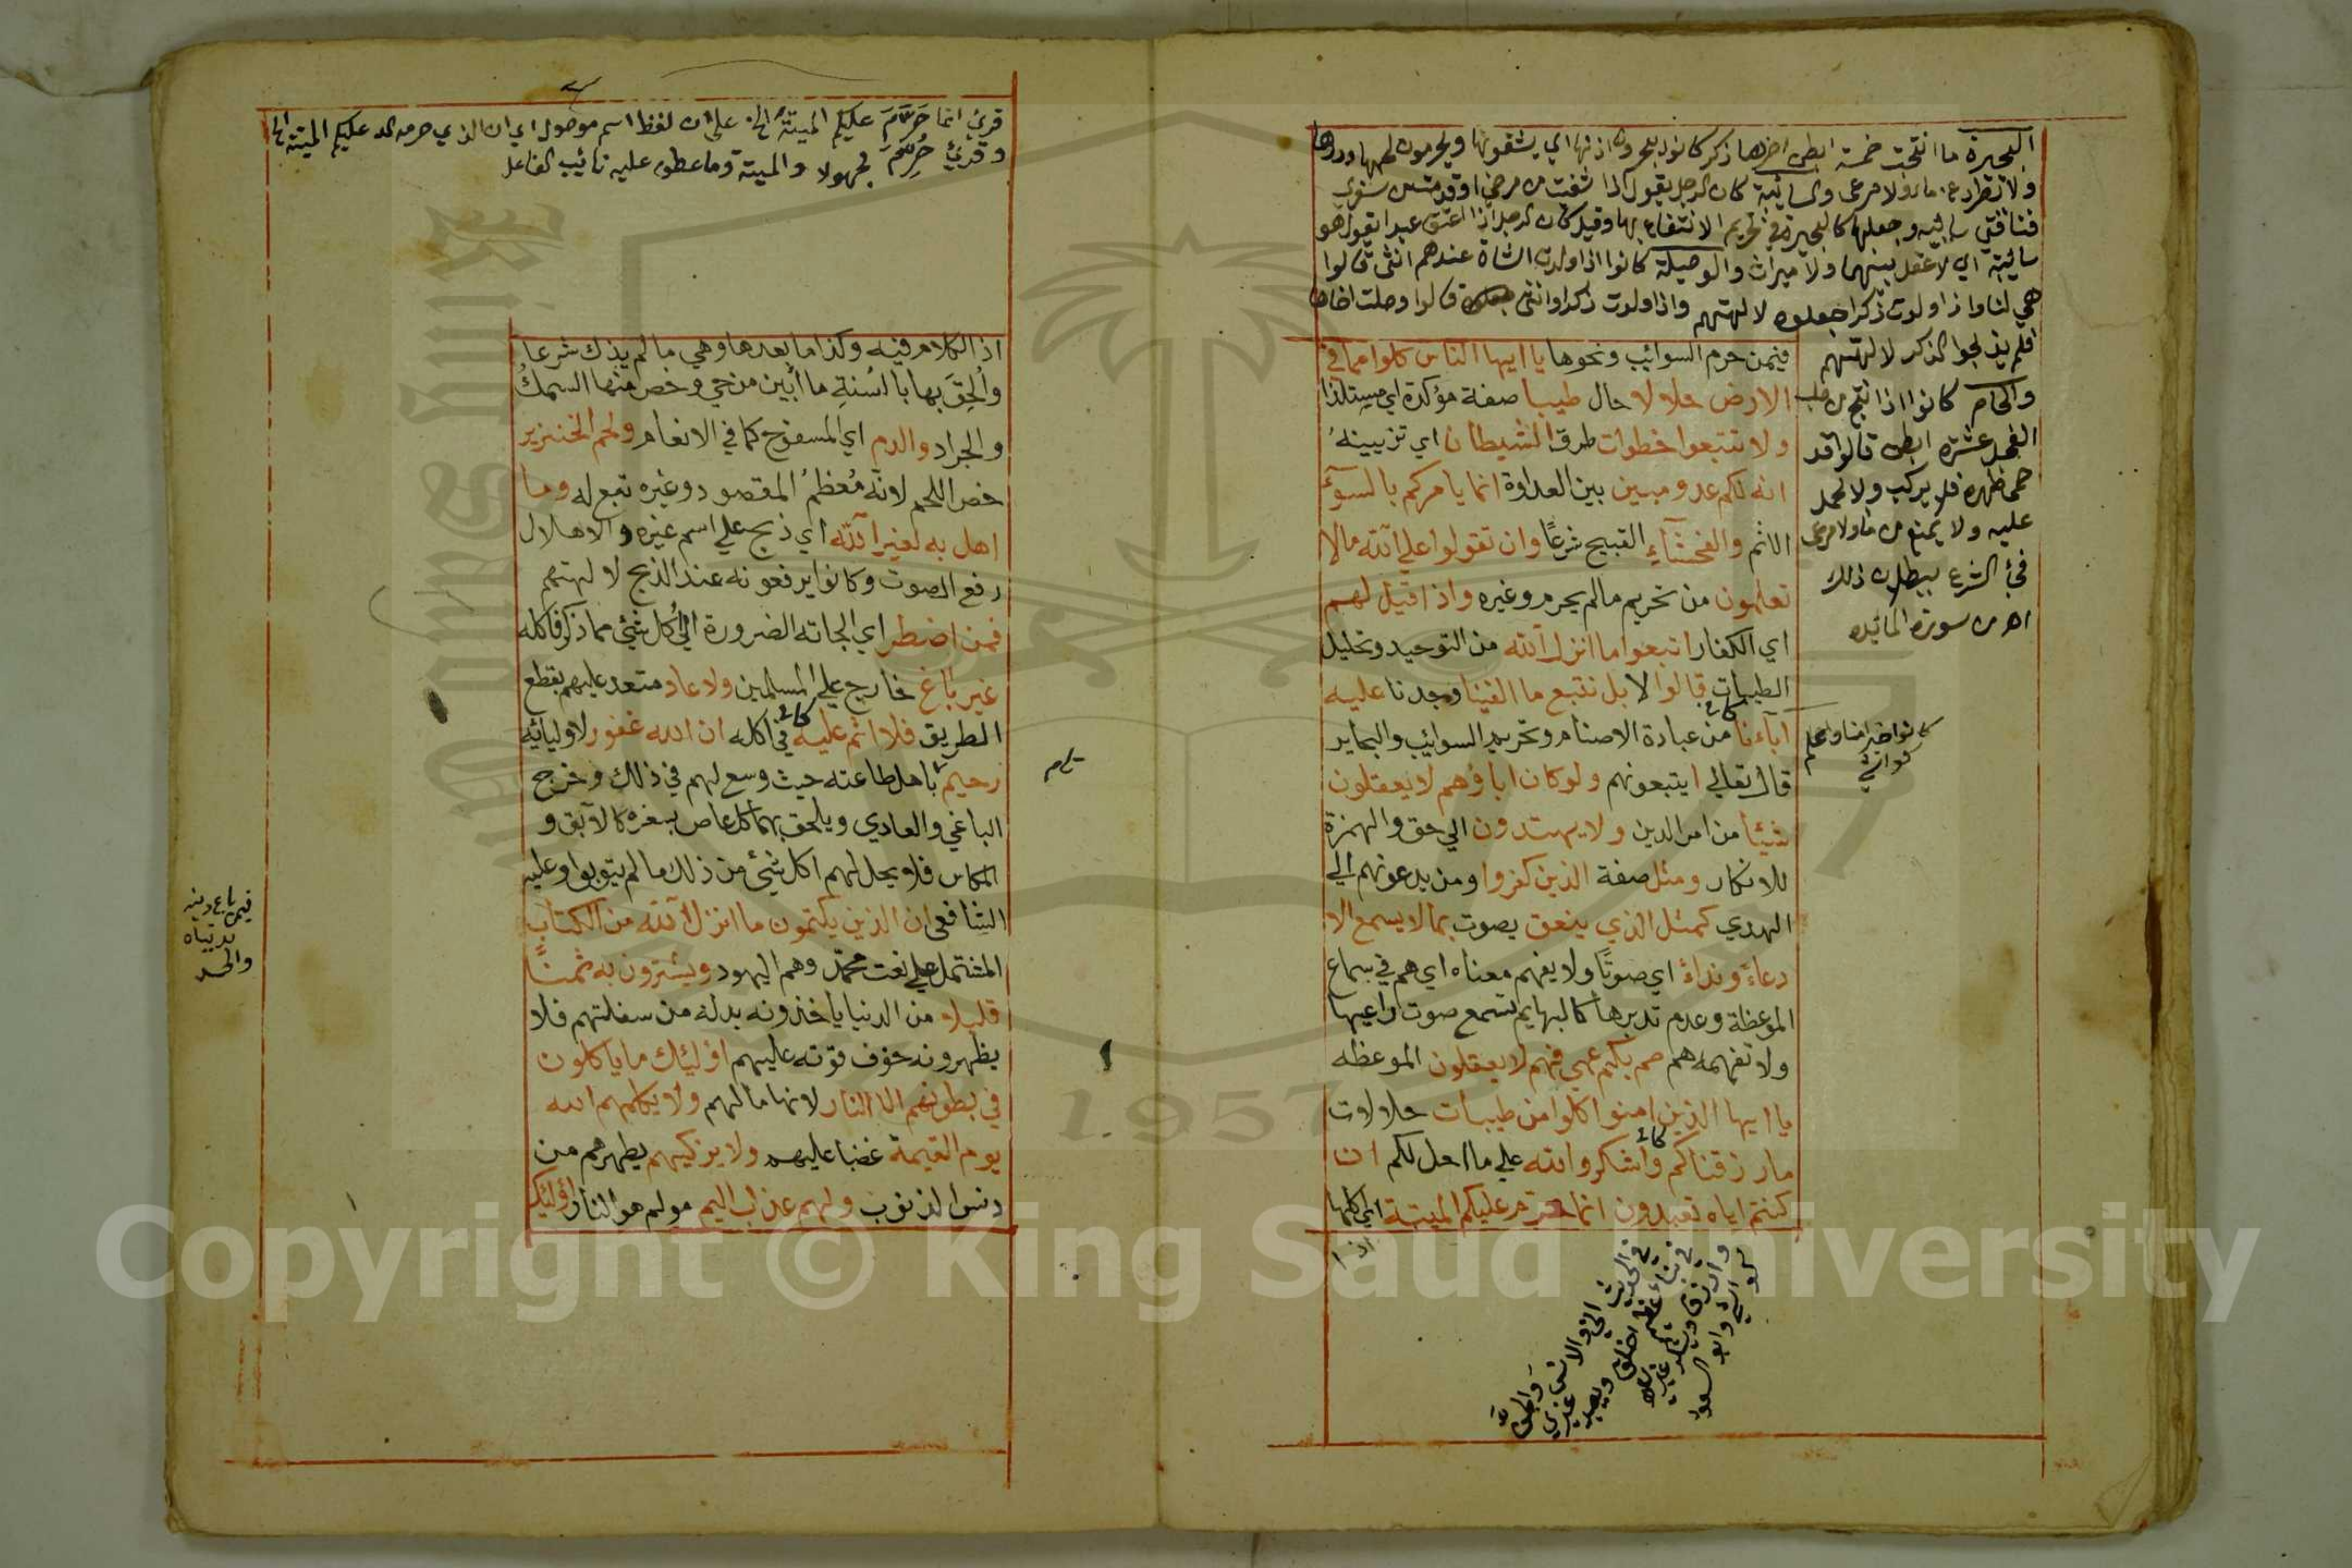 البحيرة ما انتجت خمسة ابطن اخرها ذكر كانوا يبحرون اذنها اي يشقونها ويحرمون لحمها ودرها
ولا تطرد عن ماء ولا مرعى والسائبة كان الرجل يقول اذا شفيت من مرضي او قدمت من سفري
فناقتي سائبه وجعلها كالبحيرة في تحريم الانتفاع بها وقيل كان الرجل اذا اعتق عبدا يقول هو
سائبة اي لا عقل بينهما ولا ميراث والوصيلة كانوا اذا ولدت الشاة عندهم انثى قالوا
هي لنا واذا ولدت ذكرا جعلوه لالهتهم واذا ولدت ذكرا وانثى قالوا وصلت اخاها
فلم يذبحوا الذكر لالهتهم
والحام كانوا اذا نتج من صلب
الفحل عشرة ابطن قالوا قد
حمى ظهره فلا يركب ولا يحمل
عليه ولا يمنع من ماء ولا مرعى
فجئ الشرع ببطلان ذلك
اهـ من سورة المائده
فيمن حرم السوائب ونحوها يا ايها الناس كلوا مما في
الارض حلالا حال طيبا صفة مؤكدة اي مستلذا
ولا تتبعوا خطوات طرق الشيطان اي تزيينه
انه لكم عدو مبين بين العداوة انما يامركم بالسوء
الاثم والفحشاء القبيح شرعًا وان تقولوا على الله مالا
تعلمون من تحريم مالم يحرم وغيره واذا قيل لهم
اي الكفار اتبعوا ما انزل الله من التوحيد وتحليل
الطيبات قالوا لا بل نتبع ما الفينا وجدنا عليه
اباءنا من عبادة الاصنام وتحريم السوائيب والبحاير
قال تعالى ايتبعونهم ولو كان اباؤهم لا يعقلون
شيئا من امر الدين ولا يهتدون الى حق والهمزة
للانكار ومثل صفة الذين كفروا ومن يدعونهم الى
الهدي كمثل الذي ينعق يصوت بما لا يسمع الا
دعاء ونداء اي صوتًا ولا يفهم معناه اي هم في سماع
الموعظة وعدم تدبرها كالبهايم تسمع صوت راعيها
ولا تفهمه هم صم بكم عمي فهم لا يعقلون الموعظه
يا ايها الذين امنوا كلوا من طيبات حلالات
ما رزقناكم واشكروا لله على ما احل لكم ان
كنتم اياه تعبدون انما حرم عليكم الميتة اي اكلها
اذا
في الحديث اني والانس والجن
في نبأ عظيم اخلق ويعبد غيري
وارزق ويشكر غيري
قرئ انما حَرَّمَ عليكم الميتةُ الخ على ان لفظ اسم موصول اي ان الذي حرمه الله عليكم الميتة الخ
وقرئ حُرِّمَ مجهولا والميتة وما عطف عليه نائيب الفاعل
اذ الكلام فيه وكذا ما بعدها وهي مالم يذك شرعا
والحق بها بالسنة ما أبين من حي وخص منها السمك
والجراد والدم اي المسفوح كما في الانعام ولحم الخنزير
خص اللحم لانه مُعظمُ المقصود وغيره تبع له وما
اهل به لغير الله اي ذبح على اسم غيره والاهلال
رفع الصوت وكانوا يرفعونه عند الذبح لالهتهم
فمن اضطر اي الجاته الضرورة الى اكل شئ مما ذكر فاكله
غير باغ خارج على المسلمين ولا عاد متعد عليهم بقطع
الطريق فلا اثم عليه في اكله ان الله غفور لاوليائه
رحيم باهل طاعته حيث وسع لهم في ذلك وخرج
الباغي والعادي ويلحق بهما كل عاص بسفره كالآبق و
المكاس فلا يحل لهم اكل شئ من ذلك مالم يتوبوا وعليه
الشافعي ان الذين يكتمون ما انزل الله من الكتاب
المشتمل على نعت محمد وهم اليهود ويشترون به ثمنًا
قليلا من الدنيا ياخذونه بدله من سفلتهم فلا
يظهرونه خوف فوته عليهم اولئيك ما ياكلون
في بطونهم الا النار لانها مالهم ولا يكلمهم الله
يوم القيمة غضبا عليهم ولا يزكيهم يطهرهم من
دنس الذنوب ولهم عذاب اليم مولم هو النار اولئيك
فيمن باع دينه
بدنياه
والحسد
Copyright © King Saud University
1957